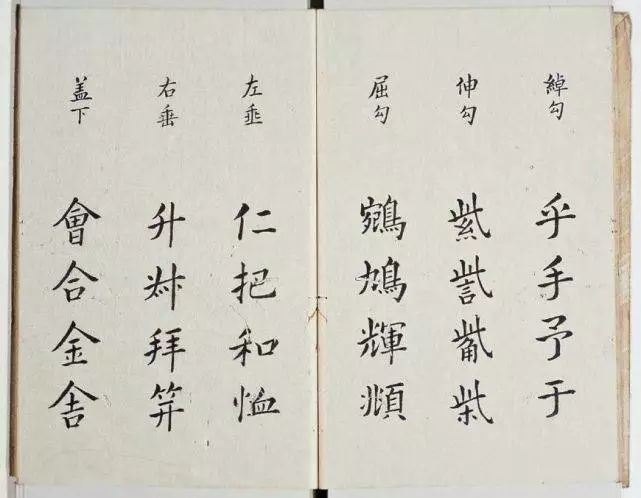 綽勾 乎手予于
伸勾 紫訾觜柴
屈勾 鵷鳩輝頫
左垂 仁把和恤
右垂 升拜笄
盖下 會合金舍